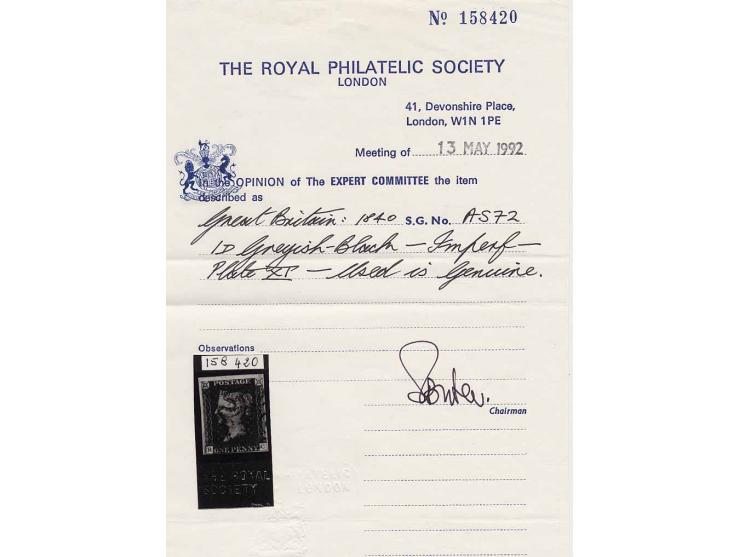 No 158420
THE ROYAL PHILATELIC SOCIETY
LONDON
41, Devonshire Place,
London, W1N 1PE
Meeting of 13 MAY 1992
In the OPINION of The EXPERT COMMITTEE the item
described as
Great Britain: 1840 S.G. No. AS72
1D Greyish-Black – Imperf –
Plate XI – Used is Genuine.
Observations
158 420
POSTAGE
ONE PENNY
Chairman
THE ROYAL PHILATELIC
SOCIETY LONDON